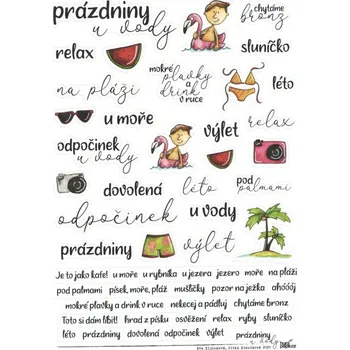 prázdniny
u vody
chytáme
bronz
relax
sluníčko
mokré
plavky
a
drink
v ruce
na pláži
léto
u moře
výlet
relax
odpočinek
u vody
dovolená
léto
pod
palmami
odpočinek
u vody
prázdniny
výlet
Je to jako kafe! u moře u rybníka u jezera jezero moře na pláži
pod palmami písek, moře, pláž mušličky pozor na ježka ahóóój
mokré plavky a drink v ruce nekecej a pádluj chytáme bronz!
Toto si dám líbit! hrad z písku osvěžení relax ryby sluníčko
léto prázdniny dovolená odpočinek výlet prázdniny
u vody